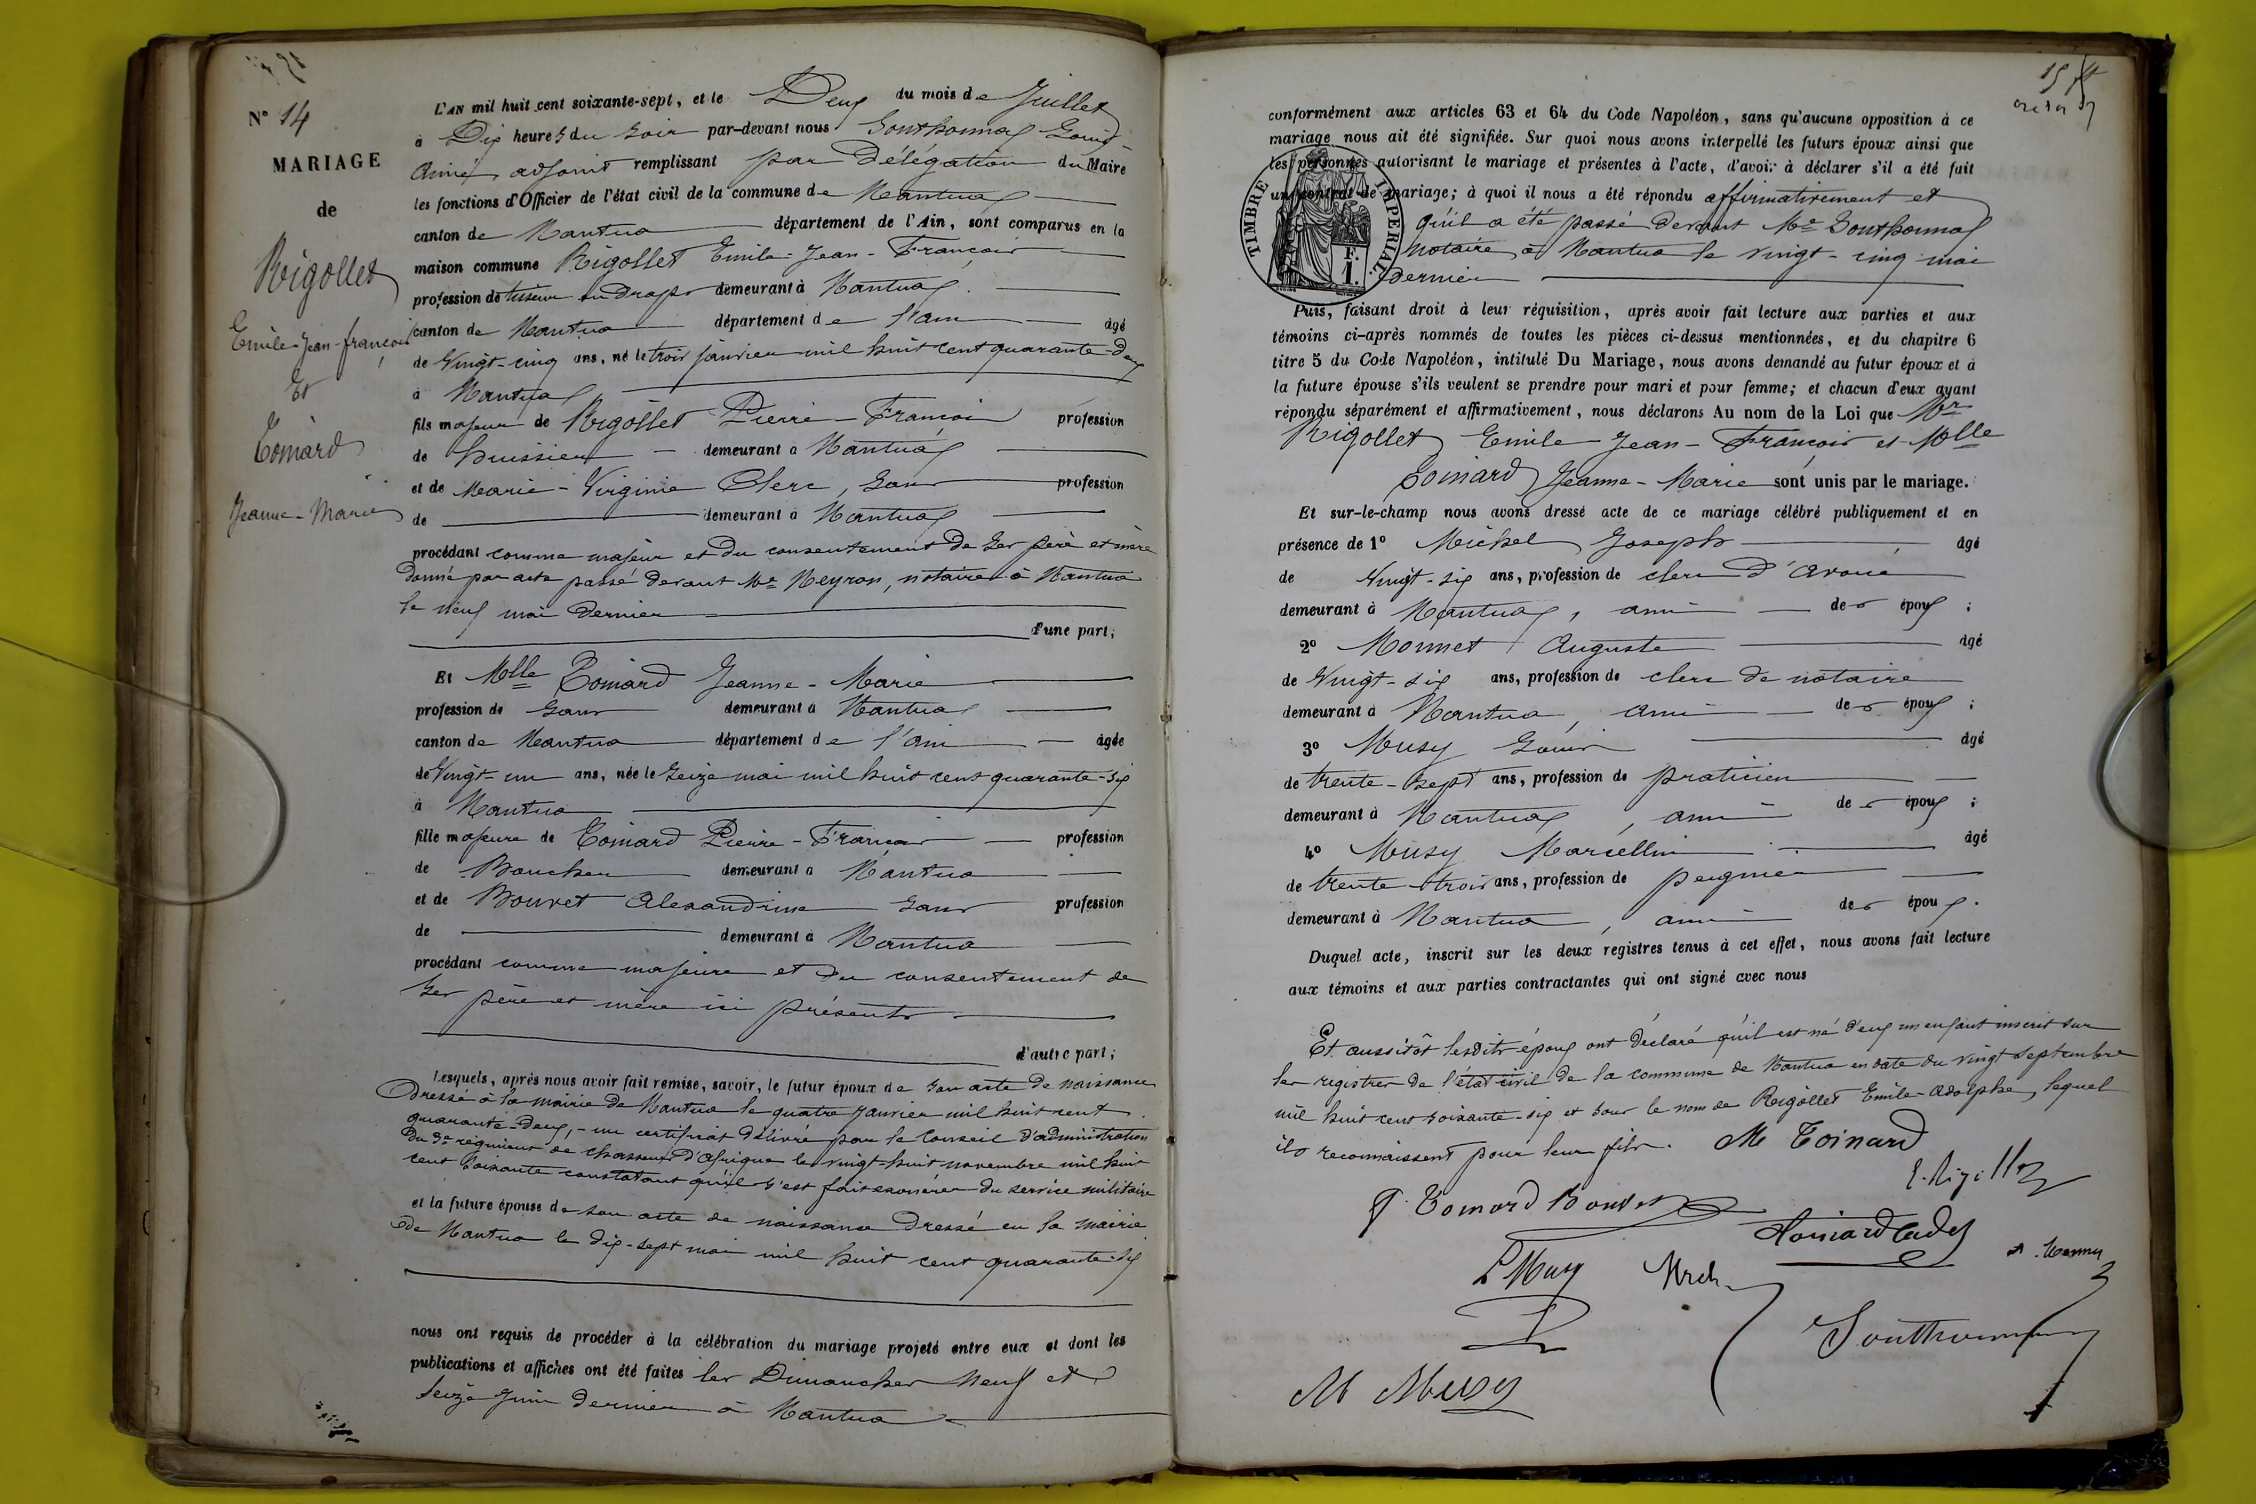 N° 14
MARIAGE
de
Rigollet
Emile-Jean-françois
Et
Toinard
Jeanne-Marie
L'AN mil huit cent soixante-sept, et le Deux du mois de Juillet
à Dix heures du soir par-devant nous Southonnax Louis-
Aimé adjoint remplissant par Délégation du Maire
les fonctions d'Officier de l'état civil de la commune de Nantua
canton de Nantua département de l'Ain, sont comparus en la
maison commune Rigollet Emile-Jean-François
profession de tisseur en draps demeurant à Nantua
canton de Nantua département de l'ain âgé
de Vingt-cinq ans, né le trois janvier mil huit cent quarante-deux
à Nantua
fils majeur de Rigollet Pierre-François profession
de huissier demeurant à Nantua
et de Marie-Virginie Clerc, sans profession
de demeurant à Nantua
procédant comme majeur et du consentement de ses père et mère
donné par acte passé devant Me Neyron, notaire à Nantua
le neuf mai dernier
d'une part;
Et Melle Toinard Jeanne-Marie
profession de sans demeurant à Nantua
canton de Nantua département de l'ain âgée
de Vingt-un ans, née le seize mai mil huit cent quarante-six
à Nantua
fille majeure de Toinard Pierre-François profession
de Boucher demeurant à Nantua
et de Bouvet Alexandrine sans profession
de demeurant à Nantua
procédant comme majeure et du consentement de
ses père et mère ici présents
d'autre part;
Lesquels, après nous avoir fait remise, savoir, le futur époux de son acte de naissance
Dressé à la mairie de Nantua le quatre janvier mil huit cent
quarante-deux,- un certificat délivré par le Conseil d'administration
du 3e régiment de chasseurs d'afrique le vingt-huit novembre mil huit
cent soixante constatant qu'il s'est fait exonérer du service militaire
et la future épouse de son acte de naissance dressé en la mairie
de Nantua le dix-sept mai mil huit cent quarante-six
nous ont requis de procéder à la célébration du mariage projeté entre eux et dont les
publications et affiches ont été faites les Dimanches Neuf et
seize juin dernier à Nantua
conformément aux articles 63 et 64 du Code Napoléon, sans qu'aucune opposition à ce
mariage nous ait été signifiée. Sur quoi nous avons interpellé les futurs époux ainsi que
les personnes autorisant le mariage et présentes à l'acte, d'avoir à déclarer s'il a été fait
un contrat de mariage; à quoi il nous a été répondu affirmativement et
qu'il a été passé devant Me Southonnax
notaire à Nantua le vingt-cinq mai
dernier
TIMBRE IMPERIAL
F.
1.
Puis, faisant droit à leur réquisition, après avoir fait lecture aux parties et aux
témoins ci-après nommés de toutes les pièces ci-dessus mentionnées, et du chapitre 6
titre 5 du Code Napoléon, intitulé Du Mariage, nous avons demandé au futur époux et à
la future épouse s'ils veulent se prendre pour mari et pour femme; et chacun d'eux ayant
répondu séparément et affirmativement, nous déclarons Au nom de la Loi que Mr
Rigollet Emile-Jean-François et Melle
Toinard Jeanne-Marie sont unis par le mariage.
Et sur-le-champ nous avons dressé acte de ce mariage célébré publiquement et en
présence de 1° Michel Joseph âgé
de Vingt-six ans, profession de clerc d'avoué
demeurant à Nantua, ami des époux;
2° Monnet Auguste âgé
de Vingt-six ans, profession de clerc de notaire
demeurant à Nantua, ami des époux;
3° Musy Louis âgé
de trente-sept ans, profession de praticien
demeurant à Nantua, ami des époux;
4° Musy Marcellin âgé
de trente-trois ans, profession de peignier
demeurant à Nantua, ami des époux.
Duquel acte, inscrit sur les deux registres tenus à cet effet, nous avons fait lecture
aux témoins et aux parties contractantes qui ont signé avec nous
Et aussitôt lesdits époux ont déclaré qu'il est né d'eux un enfant inscrit sur
les registres de l'état civil de la commune de Nantua en date du vingt septembre
mil huit cent soixante-six et sous le nom de Rigollet Emile-Adolphe, lequel
ils reconnaissent pour leur fils. M Toinard
E. Rigollet
Toinard Bouvet
Toinard Cadet
L Musy
A. Monnet
Southonnax
M Musy